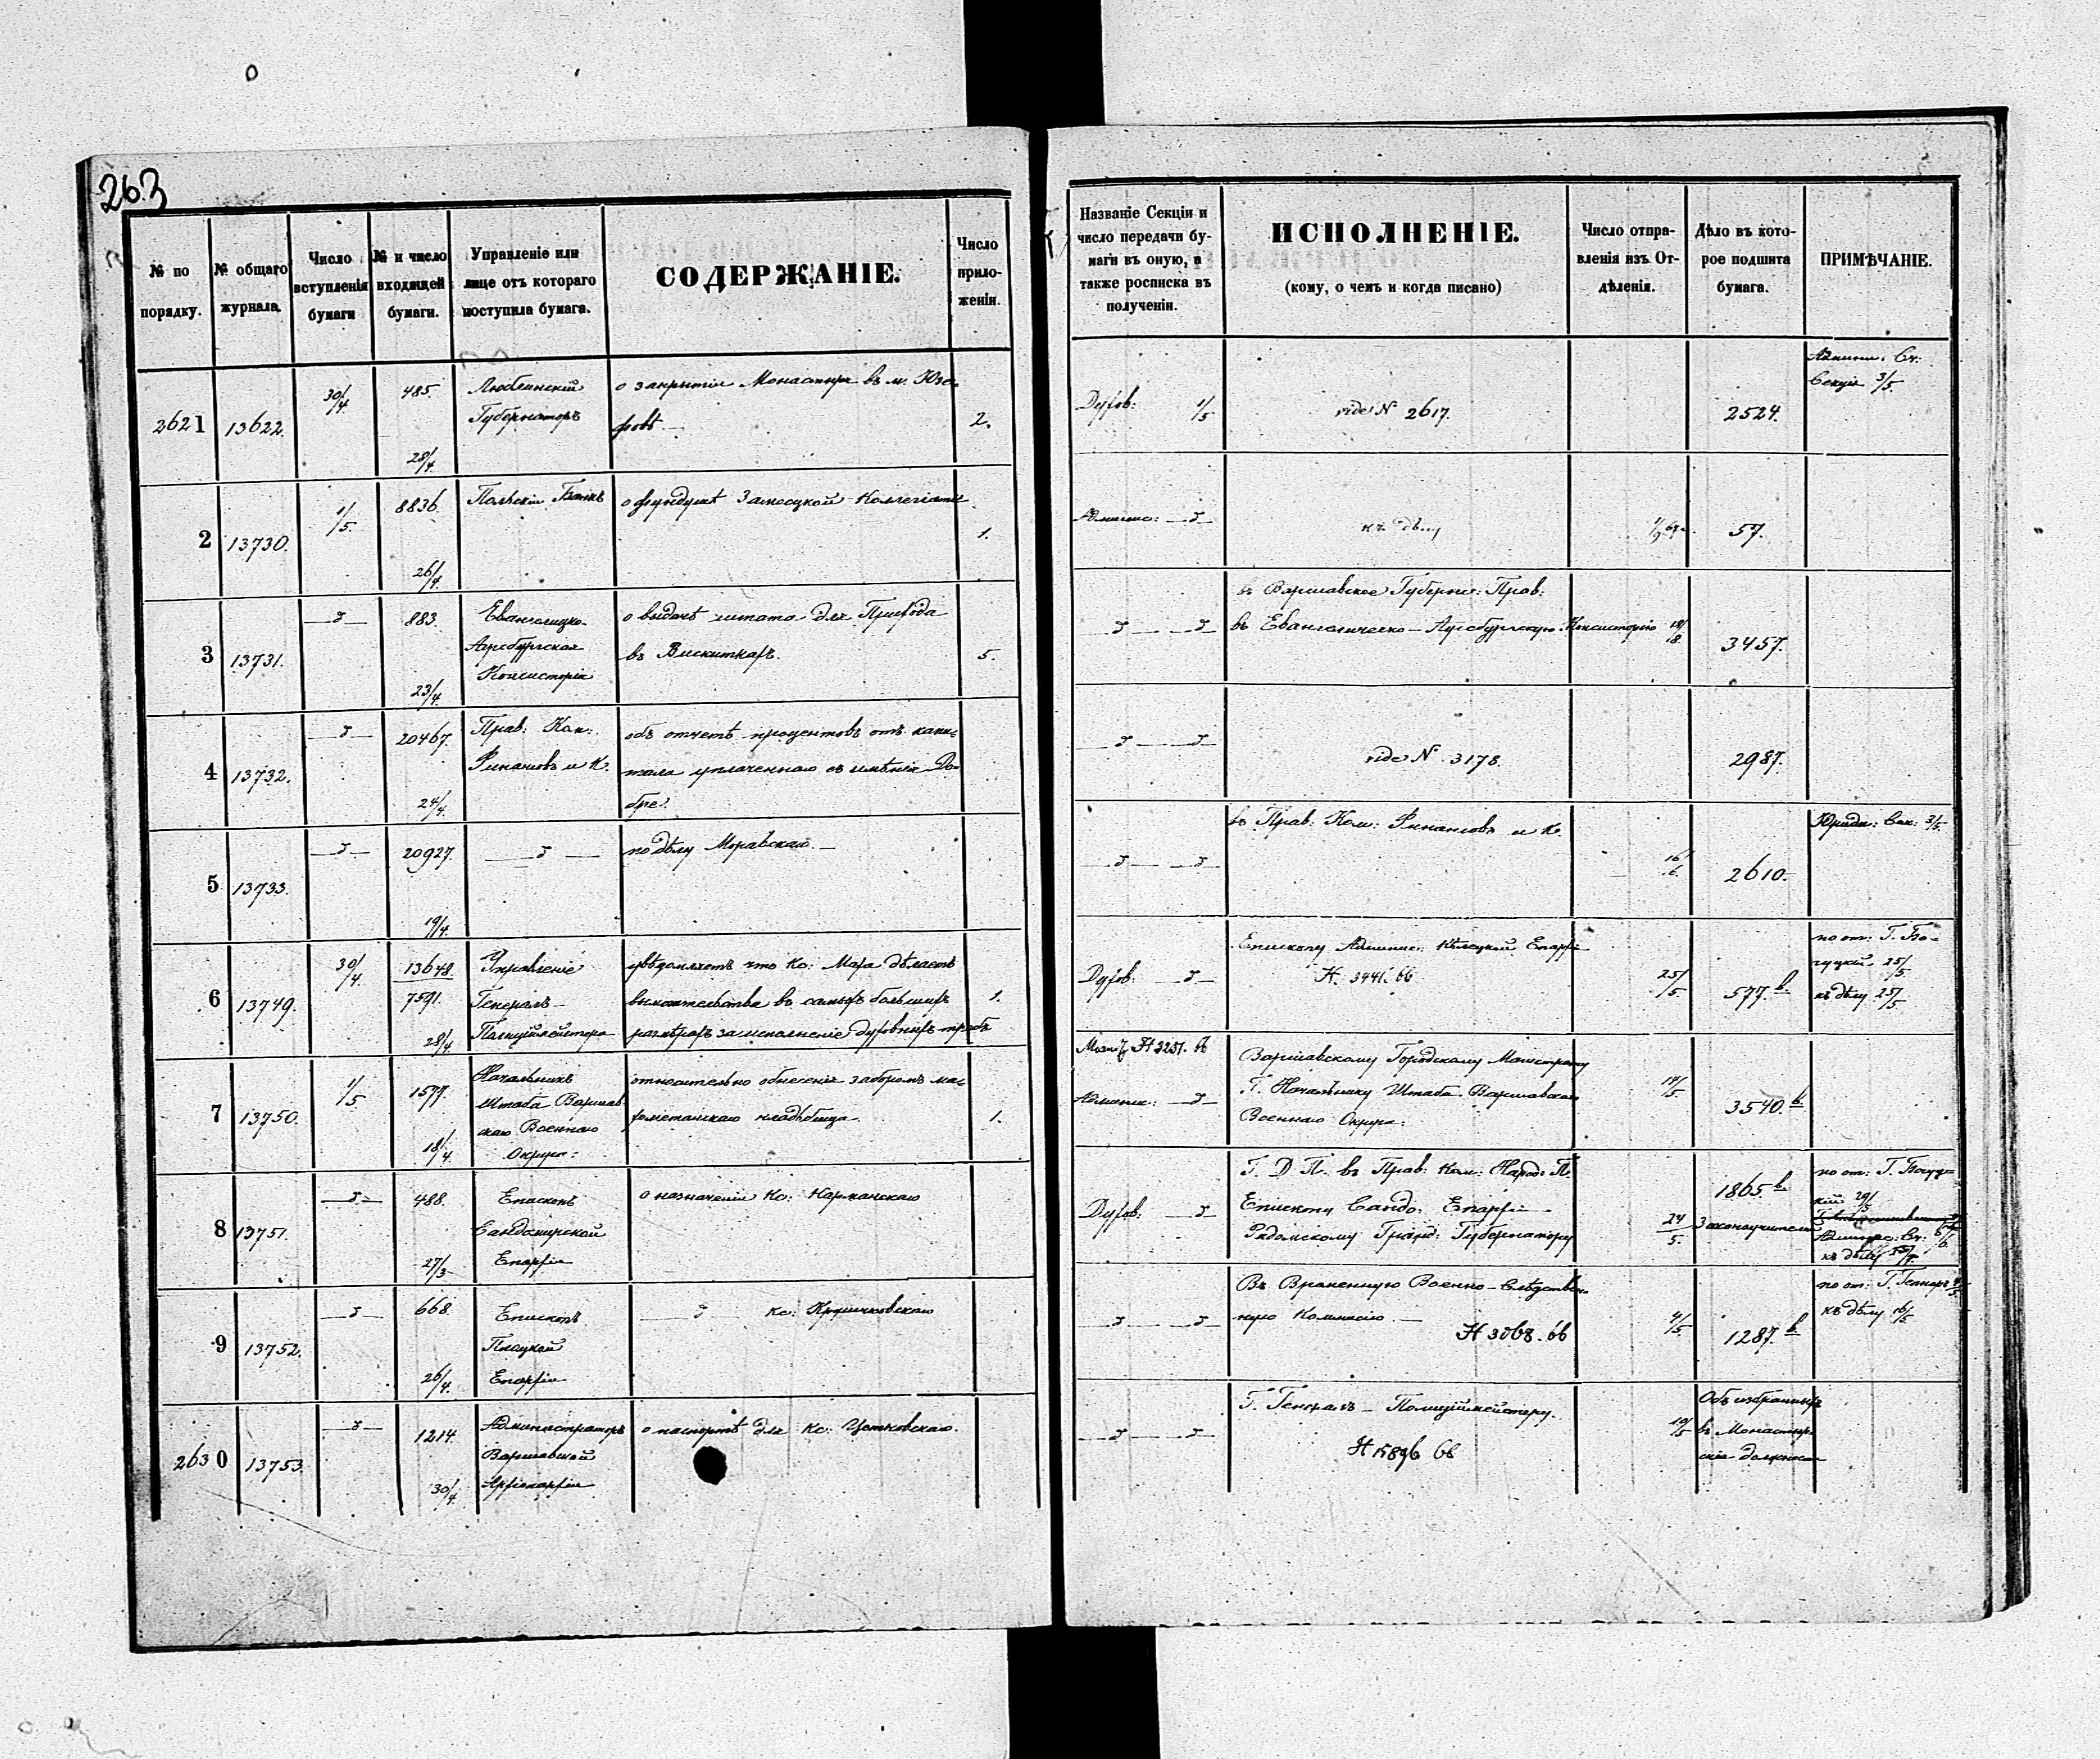 263
№ по порядку.
№ общаго журнала.
Число вступленія бумаги
№ и число входящей бумаги.
Управленіе или лице отъ котораго поступила бумага.
СОДЕРЖАНІЕ.
Число приложеніи.
Названіе Секціи и число передачи бумаги въ оную, а также росписка въ полученіи.
ИСПОЛНЕНІЕ.
(кому, о чемъ и когда писано)
Число отправленія изъ Отдѣленія.
Дѣло въ которое подшита бумага.
ПРИМѢЧАНІЕ.
2621 13622. 30/4 485. 28/4
Люблинскій
Губернаторъ
о закрытіи Монастыря въ м. Юзе-
фовѣ.
2.
Духов: 1/5
vide N 2617.
2524.
Админ. Ст:
Секція 3/5
2 13730. 1/5. 8836. 26/4
Польскій Банкъ
о фундушѣ Замосцкой Коллегіаты
1.
къ дѣлу
57.
3 13731. 883. 23/4
Евангелицко-
Аугсбургская
Консисторія
о выдачѣ штата для Прихода
въ Вискиткахъ.
5.
въ Варшавское Губернс: Прав:
въ Евангелическо-Аугсбургскую Консисторію
3457.
4 13732. 20467. 24/4
Прав: Ком:
Финансовъ и К.
объ отчетѣ процентовъ отъ капи-
тала уплаченнаго съ имѣнія До-
бре.
vide N 3178.
2987.
5 13733. 20927. 19/4
по дѣлу Моравскаго.
въ Прав: Ком: Финансовъ и К.
16/6.
2610.
Юриди: Сек: 3/5.
6 13749. 30/4. 13648 7591. 28/4
Управленіе
Генералъ-
Полиціймейстера
увѣдомляетъ что Кс: Маха дѣлаетъ
вымогательства въ самыхъ большихъ
размѣрахъ за исполненіе духовныхъ требъ
1.
Духов:
Епископу Админис: Кѣлецкой Епархіи
N. 3441. 66
25/5
577. b.
по от: Г. Бо-
гуцкій. 25/5
къ дѣлу 25/5
7 13750. 1/5 1577. 18/4
Начальникъ
Штаба Варшав-
скаго Военнаго
Округа:
относительно обнесенія заборомъ ма-
гометанскаго кладбища.
1.
N 3251. 66
Варшавскому Городскому Магистрату
Г. Начальнику Штаба Варшавскаго
Военнаго Округа.
3540. b
8 13751. 488. 27/3
Епископъ
Сандомирской
Епархіи
о назначеніи Кс: Карманскаго
Духов:
Г. Д П. въ Прав: Ком: Народ: П.
Епископу Сандо: Епархіи
Радомскому Гражд: Губернатору
24/5.
1865. b
Законоучители
по от: Г. Богуц-
кій 29/5
9 13752. 668. 26/4.
Епископъ
Плоцкой
Епархіи
Въ Временную Военно-Слѣдствен-
ную Коммисію.
N 3068. 66
4/5
1287. b
къ дѣлу 16/5
2630 13753 1214. 30/4
Администраторъ
Варшавской
Архіепархіи
о паспортѣ для Кс:
Г. Генералъ-Полиціймейстеру.
N 15896 66
19/5
Объ избранныхъ
въ Монастыр-
скіе должности